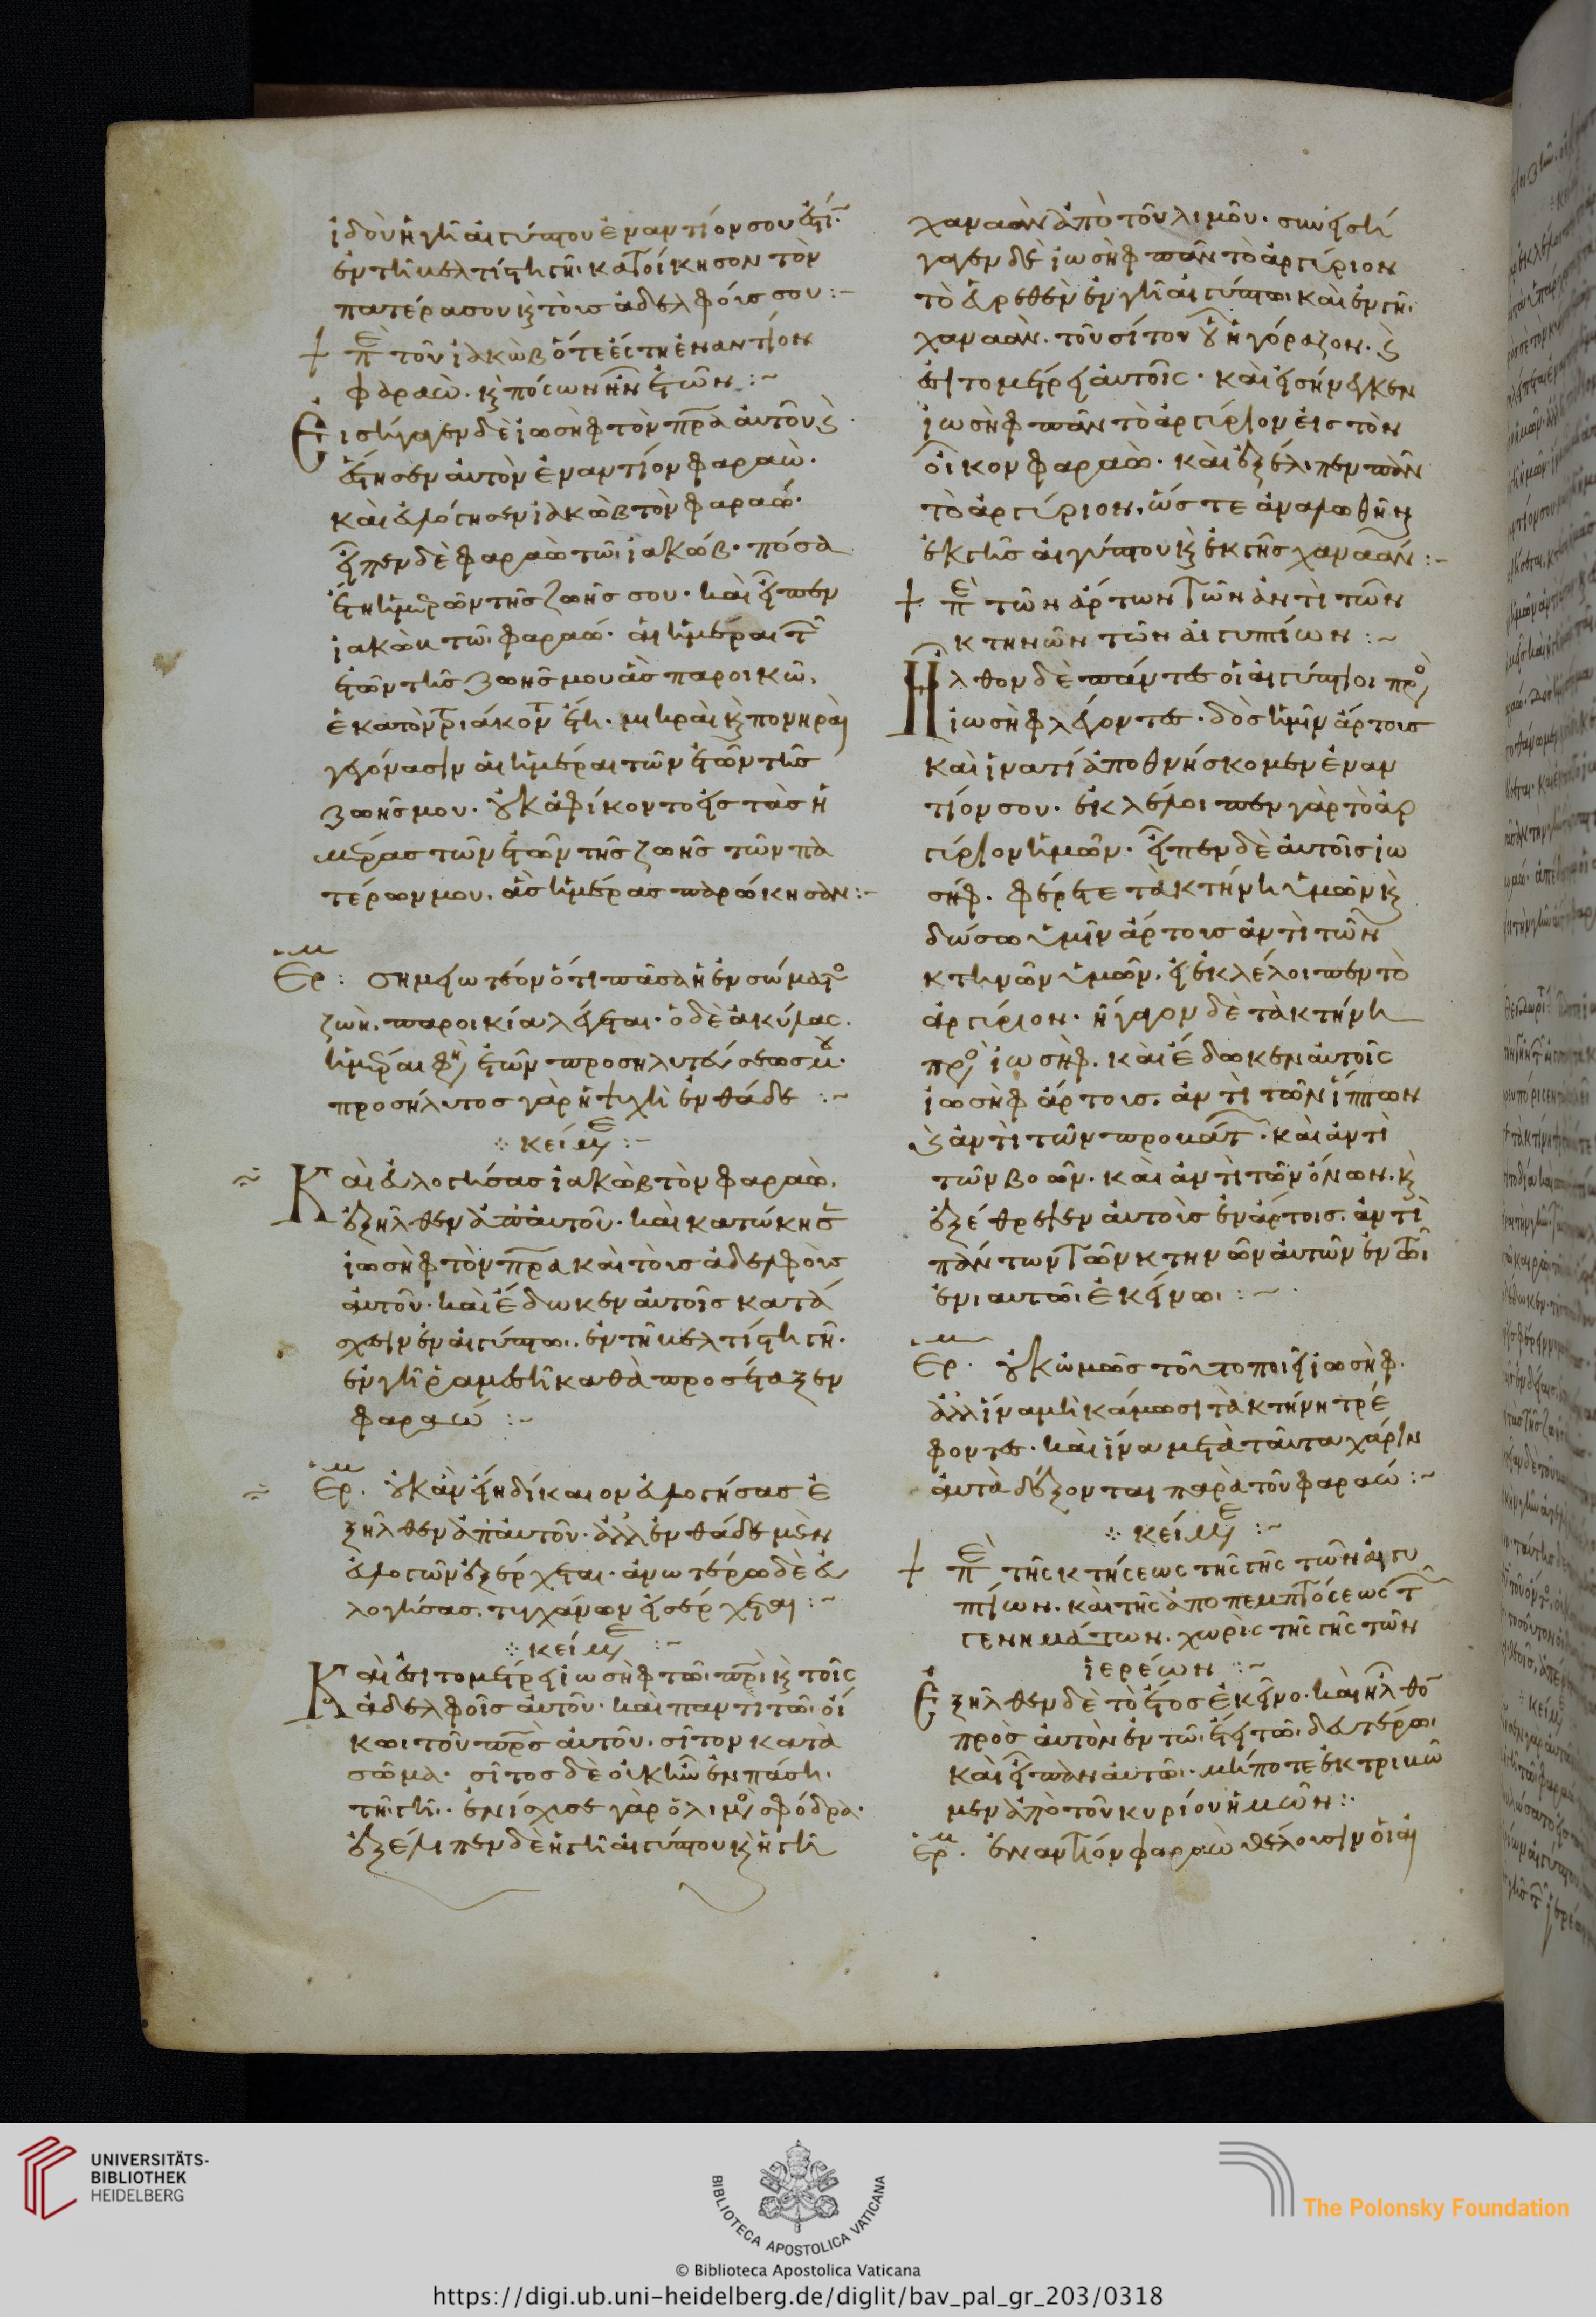 ἰδοὺ ἡ γῆ αἰγύπτου ἐναντίον σου ἐστί.
ἐν τῇ βελτίστῃ γῇ. κατοίκησον τὸν
πατέρα σου κ τοὺς ἀδελφούς σου :-
+ πε τοῦ ἰακὼβ ὅτε ἔστη ἐναντίον
φαραὼ. κ πόσων ἦν ἐτῶν :~
Εἰσήγαγεν δὲ ἰωσὴφ τὸν πρα αὐτοῦ κ
ἔστησεν αὐτὸν ἐναντίον φαραὼ.
καὶ εὐλόγησεν ἰακὼβ τὸν φαραώ.
εἶπεν δὲ φαραὼ τῶ ἰακώβ. πόσα
ἔτη ἡμερῶν τῆς ζωῆς σου. καὶ εἶπεν
ἰακὼβ τῶ φαραώ. αἱ ἡμέραι τ
ἐτῶν τῆς ζωῆς μου ἃς παροικῶ.
ἑκατὸν τριάκοντ ἔτη. μικραὶ κ πονηραὶ
γεγόνασιν αἱ ἡμέραι τῶν ἐτῶν τῆς
ζωῆς μου. οὐκ ἀφίκοντο εἰς τὰς ἡ
μέρας τῶν ἐτῶν τῆς ζωῆς τῶν πα
τέρων μου. ἃς ἡμέρας παρώκησαν :-
Ερμ : σημειωτέον ὅτι πᾶσα ἡ ἐν σώματ
ζωὴ. παροικία λέγεται. ὁ δὲ ἀκύλας.
ἡμέραι φη ἐτῶν προσηλυτεύσεώς μου.
προσήλυτος γὰρ ἡ ψυχὴ ἐνθάδε :~
κείμε :-
Καὶ εὐλογήσας ἰακὼβ τὸν φαραὼ.
ἐξῆλθεν ἀπ' αὐτοῦ. καὶ κατώκησ
ἰωσὴφ τὸν πρα καὶ τοὺς ἀδελφοὺς
αὐτοῦ. καὶ ἔδωκεν αὐτοῖς κατά
σχεσιν ἐν αἰγύπτω. ἐν τῇ βελτίστῃ γῇ.
ἐν γῇ ῥαμεσῆ καθὰ προσέταξεν
φαραώ :~
Ερμ. οὐκ ἂν εἴη δίκαιον εὐλογήσας ἐ
ξῆλθεν ἀπ' αὐτοῦ. ἀλλ' ἐνθάδε μὲν
εὐλογῶν ἐξέρχεται. ἀνωτέρω δὲ εὐ
λογήσας. τυγχάνων εἰσέρχεται :~
κείμε :~
Καὶ ἐσιτομέτρει ἰωσὴφ τῶ πρὶ κ τοῖς
ἀδελφοῖς αὐτοῦ. καὶ παντὶ τῶ οἴ
κωι τοῦ πρς αὐτοῦ. σῖτον κατὰ
σῶμα. σῖτος δὲ οὐκ ἦν ἐν πάσῃ
τῇ γῇ. ἐνίσχυσε γὰρ ὁ λιμὸς σφόδρα.
ἐξέλιπεν δὲ ἡ γῆ αἰγύπτου κ ἡ γῆ
χαναὰν ἀπὸ τοῦ λιμοῦ. συνεισή
γαγεν δὲ ἰωσὴφ πᾶν τὸ ἀργύριον
τὸ εὑρεθὲν ἐν γῇ αἰγύπτω. καὶ ἐν γῇ
χαναὰν. τοῦ σίτου οὗ ἠγόραζον. κ
ἐσιτομέτρει αὐτοῖς. καὶ εἰσήνεγκεν
ἰωσὴφ πᾶν τὸ ἀργύριον εἰς τὸν
οἶκον φαραώ. καὶ ἐξέλιπεν πᾶν
τὸ ἀργύριον, ὥστε ἀναλωθῆναι
ἐκ τῆς αἰγύπτου κ ἐκ τῆς χαναάν :-
+ πε τῶν ἄρτων τῶν ἀντὶ τῶν
κτηνῶν τῶν αἰγυπτίων :~
Ἦλθον δὲ πάντες οἱ αἰγύπτιοι πρὸς
ἰωσὴφ λέγοντες. δὸς ἡμῖν ἄρτους
καὶ ἱνατί ἀποθνήσκομεν ἐναν
τίον σου. ἐκλέλοιπεν γὰρ τὸ ἀρ
γύριον ἡμῶν. εἶπεν δὲ αὐτοῖς ἰω
σήφ. φέρετε τὰ κτήνη ὑμῶν κ
δώσω ὑμῖν ἄρτους ἀντὶ τῶν
κτηνῶν ὑμῶν. εἰ ἐκλέλοιπεν τὸ
ἀργύριον. ἤγαγον δὲ τὰ κτήνη
πρὸς ἰωσὴφ. καὶ ἔδωκεν αὐτοῖς
ἰωσὴφ ἄρτους. ἀντὶ τῶν ἵππων
κ ἀντὶ τῶν προβάτ. καὶ ἀντὶ
τῶν βοῶν. καὶ ἀντὶ τῶν ὄνων. κ
ἐξέθρεψεν αὐτοὺς ἐν ἄρτοις. ἀντὶ
πάντων τῶν κτηνῶν αὐτῶν ἐν τῶι
ἐνιαυτῶι ἐκείνωι :~
Ερμ. οὐκ ὠμῶς τοῦτο ποιεῖ ἰωσὴφ.
ἀλλ' ἵνα μὴ κάμωσι τὰ κτήνη τρέ
φοντες. καὶ ἵνα μετὰ ταῦτα χάριν
αὐτὰ δέξονται παρὰ τοῦ φαραώ :~
κείμε :~
+ πε τῆς κτήσεως τῆς γῆς τῶν αἰγυ
πτίων. καὶ τῆς ἀποπεμπτόσεως τ
γενημάτων. χωρὶς τῆς γῆς τῶν
ἱερέων :~
Ἐξῆλθεν δὲ τὸ ἔτος ἐκεῖνο. καὶ ἦλθο
πρὸς αὐτὸν ἐν τῶ ἔτει τῶ δευτέρω.
καὶ εἶπαν αὐτῶ. μήποτε ἐκτριβῶ
μεν ἀπὸ τοῦ κυρίου ἡμῶν :.
Ερμ. ἐναντίον φαραὼ θέλουσιν οἱ αἰ
UNIVERSITÄTS-
BIBLIOTHEK
HEIDELBERG
BIBLIOTECA APOSTOLICA VATICANA
The Polonsky Foundation
© Biblioteca Apostolica Vaticana
https://digi.ub.uni-heidelberg.de/diglit/bav_pal_gr_203/0318